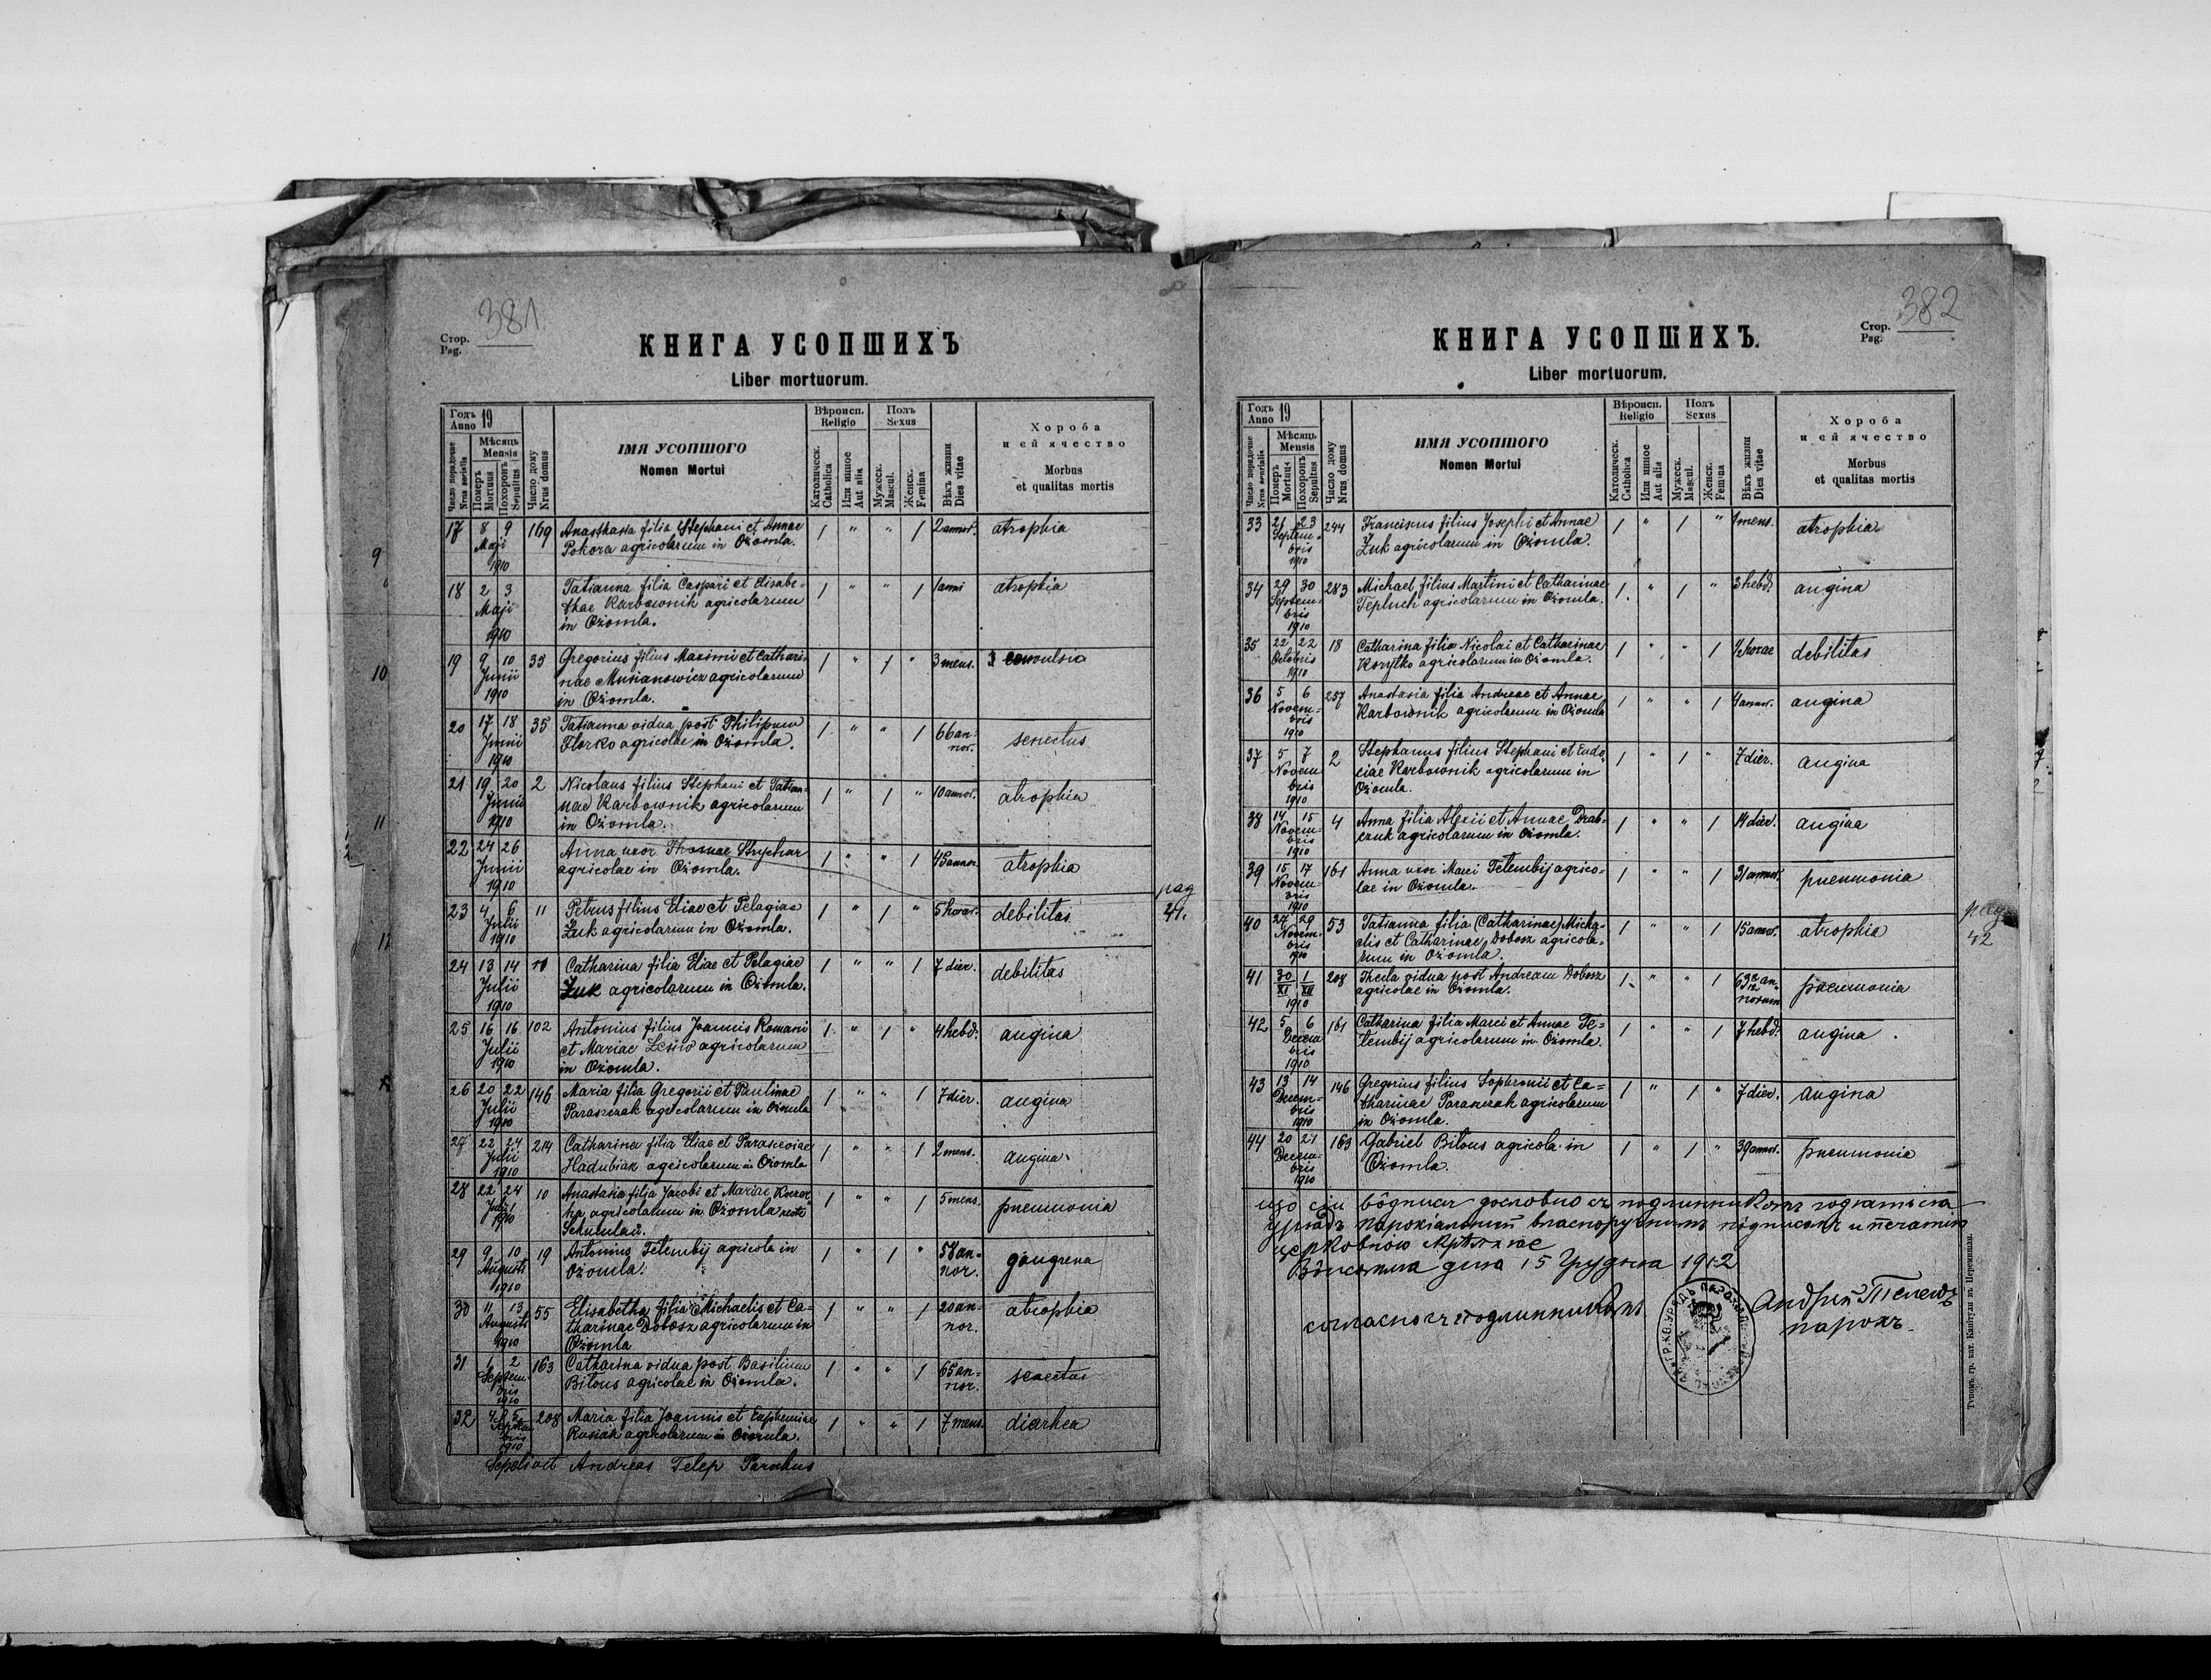 381
Стор.
Pag.
КНИГА УСОПШИХЪ
Liber mortuorum.
Годъ 19
Anno
Мѣсяць
Mensis
Число порядочне
Nrus serialis
Померъ
Mortuus
Похоронъ
Sepultus
Число дому
Nrus domus
ІМЯ УСОПШОГО
Nomen Mortui
Вѣроисп.
Religio
Католическ.
Catholica
Или инное
Aut alia
Полъ
Sexus
Мужеск.
Mascul.
Женск.
Femina
Вѣкъ жизни
Dies vitae
Хороба
и ей ячество
Morbus
et qualitas mortis
17 8 9 169 Anasthasia filia Stephani et Annae 1 " " 1 2 annor. atrophia
Maji Pokora agricolarum in Ożomla.
1910
18 2 3 Tatianna filia Caspari et Elisabe- 1 " " 1 1 anni atrophia
Maji thae Karbownik agricolarum
1910 in Ożomla.
19 9 10 35 Gregorius filius Maximi et Cathari- 1 " 1 " 3 mens. convulsio
Junii nae Musianowicz agricolarum
1910 in Ożomla.
20 17 18 35 Tatianna vidua post Philipum 1 " " 1 66 an- senectus
Junii Florko agricolae in Ożomla. nor.
1910
21 19 20 2 Nicolaus filius Stephani et Tatian- 1 " 1 " 10 annor. atrophia
Junii nae Karbownik agricolarum
1910 in Ożomla.
22 24 26 Anna uxor Thomae Strychar 1 " " 1 45 annor. atrophia
Junii agricolae in Ożomla.
1910
23 4 6 11 Petrus filius Eliae et Pelagiae 1 " 1 " 5 horar. debilitas
Julii Żuk agricolarum in Ożomla.
1910
pag
41.
24 13 14 11 Catharina filia Eliae et Pelagiae 1 " " 1 7 dier. debilitas
Julii Żuk agricolarum in Ożomla.
1910
25 16 16 102 Antonius filius Joannis Romani 1 " 1 " 4 hebd. angina
Julii et Mariae Lesiw agricolarum
1910 in Ożomla.
26 20 22 146 Maria filia Gregorii et Paulinae 1 " " 1 7 dier. angina
Julii Parasczak agricolarum in Ożomla
1910
27 22 24 214 Catharina filia Eliae et Parasceviae 1 " " 1 2 mens. angina
Julii Hadubiak agricolarum in Ożomla
1910
28 22 24 10 Anastasia filia Jacobi et Mariae 1 " " 1 5 mens. pneumonia
Julii agricolarum in Ożomla recte
1910
29 9 10 19 Antonius Telembij agricola in 1 " 1 " 58 an- gangrena
Augusti Ożomla. nor.
1910
30 11 13 55 Elisabetha filia Michaelis et Ca- 1 " " 1 20 an- atrophia
Augusti tharinae Dobosz agricolarum in nor.
1910 Ożomla
31 1 2 163 Catharina vidua post Basilium 1 " " 1 65 an- senectus
Septem- Bilous agricolae in Ożomla. nor.
bris
1910
32 4 5 208 Maria filia Joannis et Euphemiae 1 " " 1 7 mens. diarhea
Septem- Rusiak agricolarum in Ożomla.
bris
1910
Sepelivit Andreas Telep Parochus
9
10
11
12
382
Стор.
Pag.
КНИГА УСОПШИХЪ.
Liber mortuorum.
Годъ 19
Anno
Мѣсяць
Mensis
Число порядочне
Nrus serialis
Померъ
Mortuus
Похоронъ
Sepultus
Число дому
Nrus domus
ИМЯ УСОПШОГО
Nomen Mortui
Вѣроисп.
Religio
Католическ.
Catholica
Или инное
Aut alia
Полъ
Sexus
Мужеск.
Mascul.
Женск.
Femina
Вѣкъ жизни
Dies vitae
Хороба
и ей ячество
Morbus
et qualitas mortis
33 21 23 244 Franciscus filius Josephi et Annae 1 " 1 " 1 mens. atrophia
Septem- Żuk agricolarum in Ożomla.
bris
1910
34 29 30 283 Michael filius Martini et Catharinae 1 " 1 " 3 hebd. angina
Septem- Tepluch agricolarum in Ożomla.
bris
1910
35 22 22 18 Catharina filia Nicolai et Catharinae 1 " " 1 1/2 horae debilitas
Octobris Korytko agricolarum in Ożomla.
1910
36 5 6 257 Anastasia filia Andreae et Annae 1 " " 1 4 annor. angina
Novem- Karbownik agricolarum in Ożomla
bris
1910
37 5 7 2 Stephanus filius Stephani et Eudo- 1 " 1 " 7 dier. angina
Novem ciae Karbownik agricolarum in
bris Ożomla.
1910
38 14 15 4 Anna filia Alexii et Annae Drab- 1 " " 1 14 dier. angina
Novem- czuk agricolarum in Ożomla.
bris
1910
39 15 17 161 Anna uxor Marci Telembij agrico- 1 " " 1 31 annor. pneumonia
Novem- lae in Ożomla.
bris
1910
40 27 29 53 Tatianna filia (Catharinae) Micha- 1 " " 1 15 annor. atrophia
Novem- elis et Catharinae Dobosz agricola-
bris rum in Ożomla.
1910
pag
42
41 30 1 208 Thecla vidua post Andream Dobosz 1 " " 1 63 an- pneumonia
XI XII agricolae in Ożomla. norum
1910
42 5 6 161 Catharina filia Marci et Annae Te- 1 " " 1 7 hebd. angina
Decem lembij agricolarum in Ożomla.
bris
1910
43 13 14 146 Gregorius filius Sophronii et Ca- 1 " 1 " 7 dier. angina
Decem- tharinae Parasczak agricolarum
bris in Ożomla.
1910
44 20 21 163 Gabriel Bilous agricola in 1 " 1 " 39 annor. pneumonia
Decem- Ożomla.
bris
1910
що сей вôдписъ дословно съ подлинникомъ годитъ ся
урядъ парохіальный власноручнымъ підписомъ и печатію
церковною
дня 15 Грудня 1912
согласно съ подлинникомъ
Андрій Телепъ
парохъ
Типомъ гр. кат. Капітули въ Перемишли.